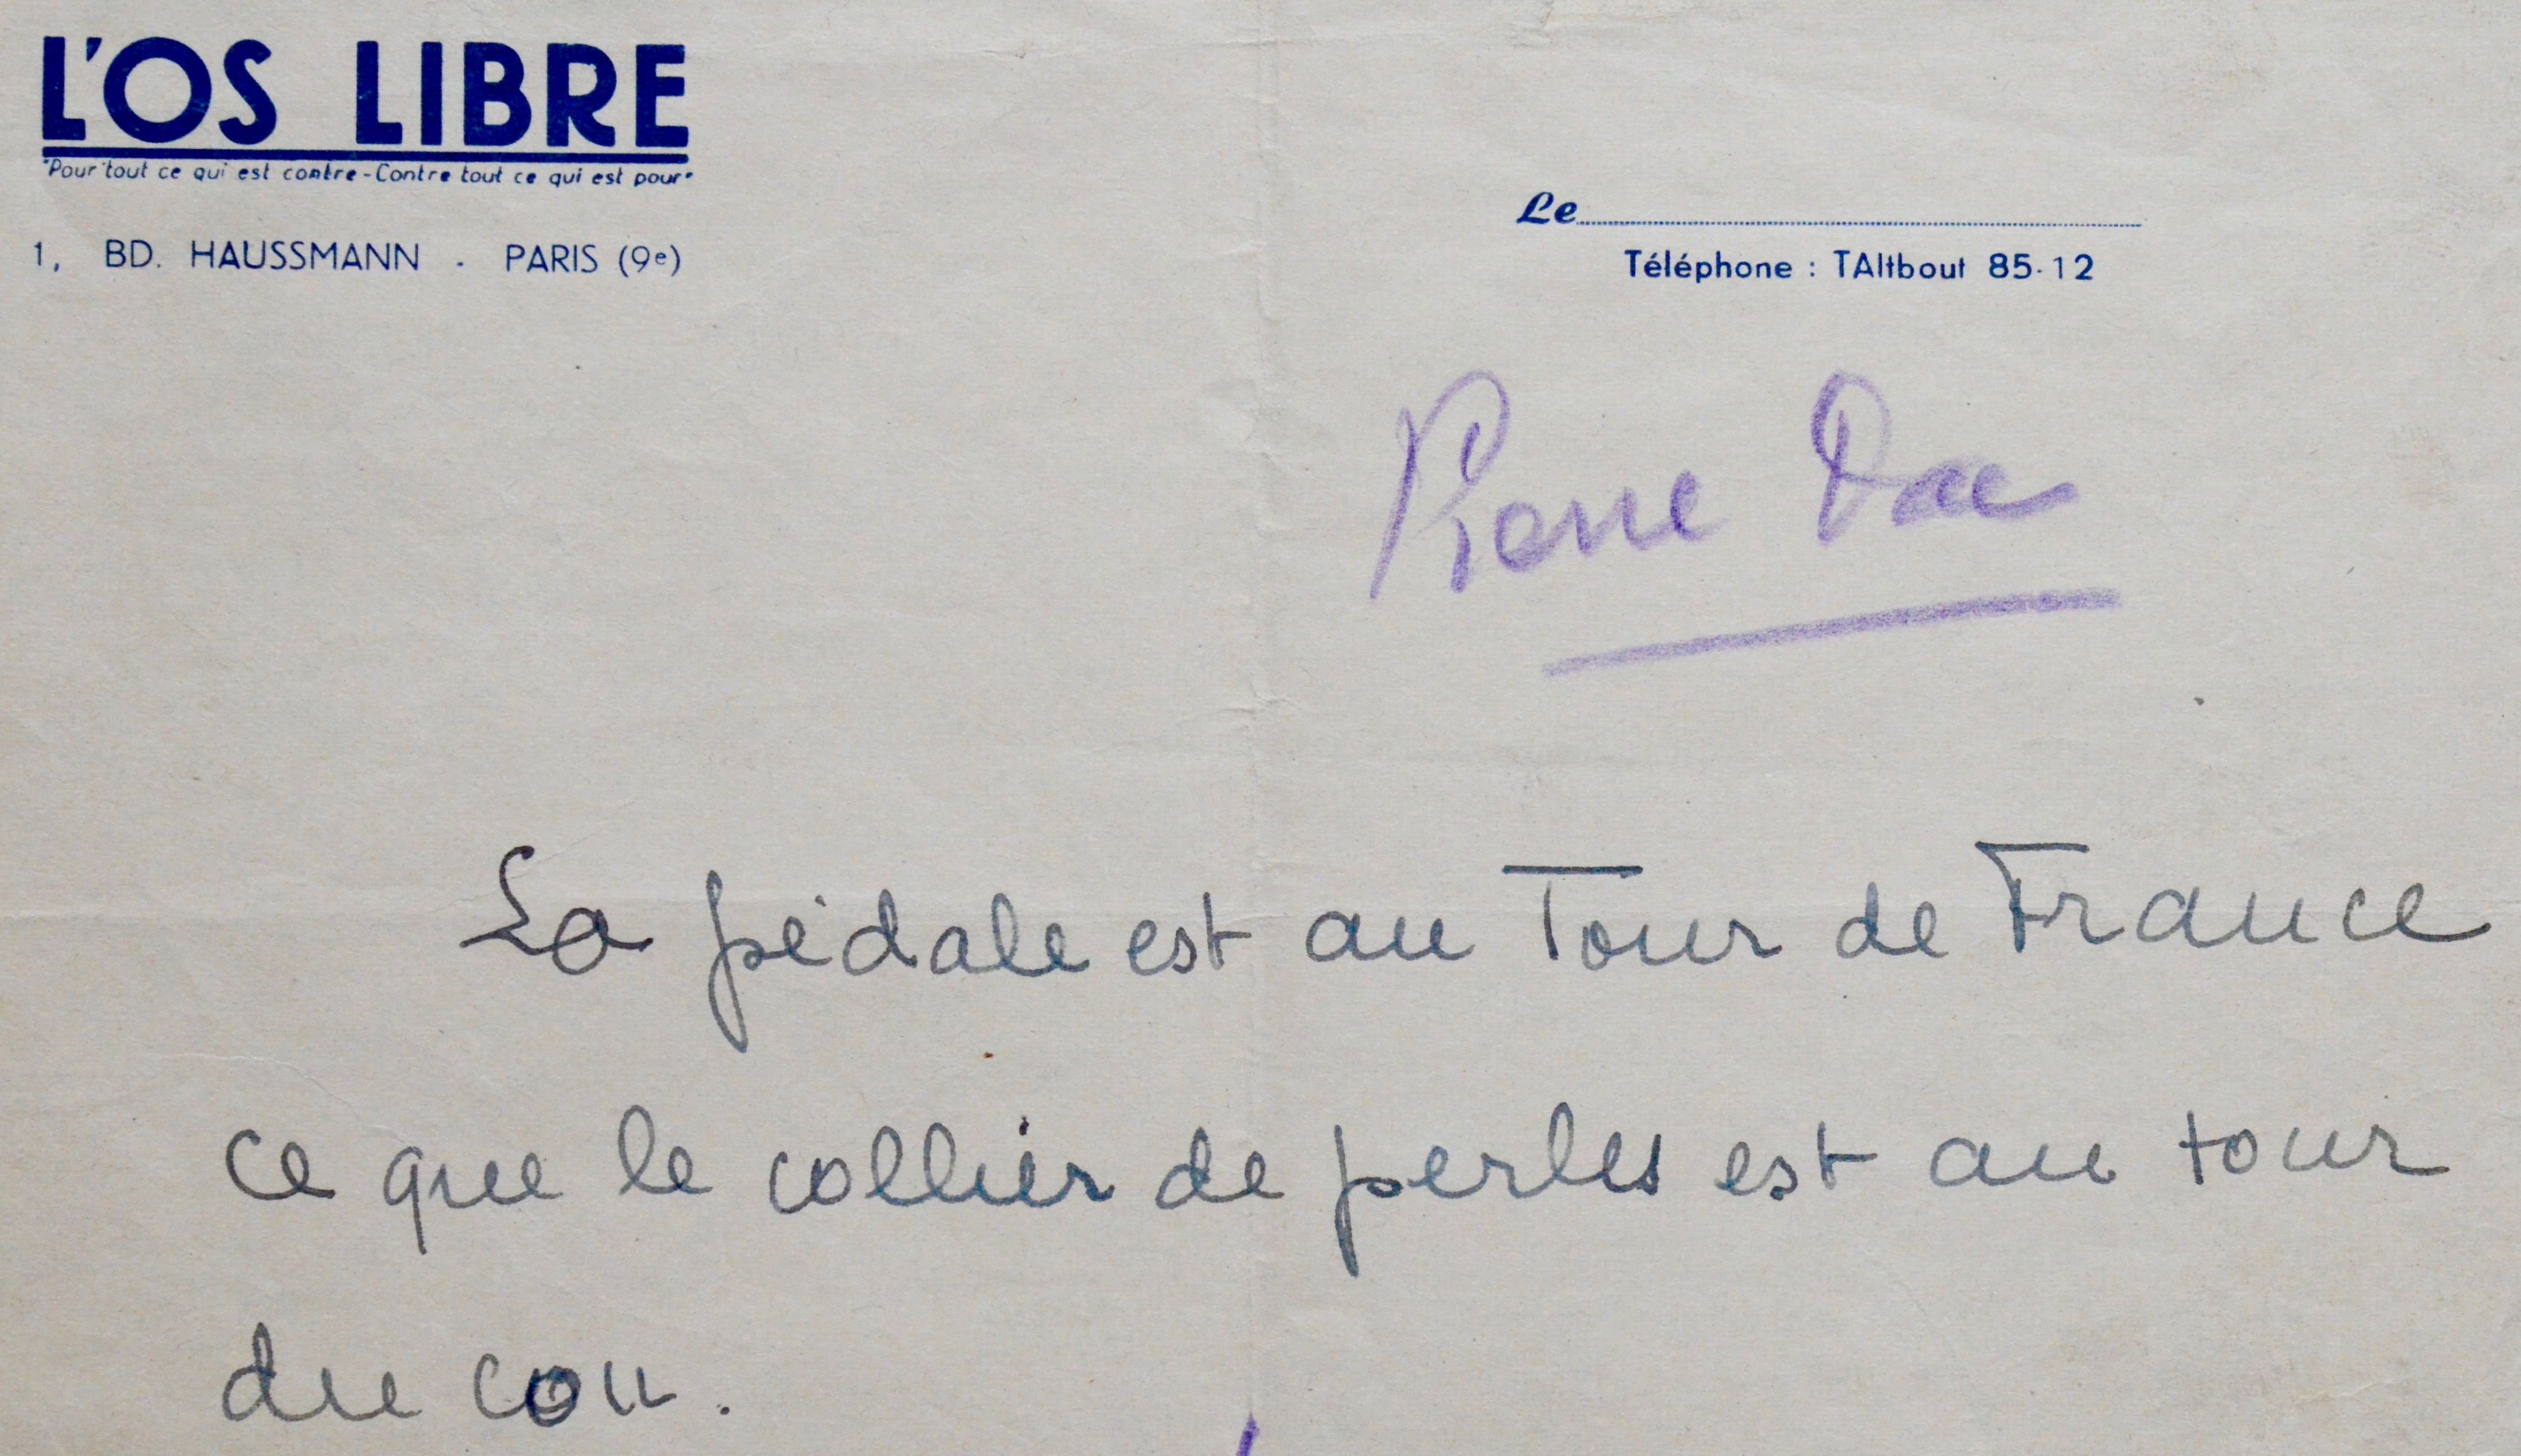 L'OS LIBRE
"Pour tout ce qui est contre-Contre tout ce qui est pour"
1, BD. HAUSSMANN - PARIS (9e)
Le
Téléphone : TAItbout 85-12
Pierre Dac
La pédale est au Tour de France
ce que le collier de perles est au tour
du cou.